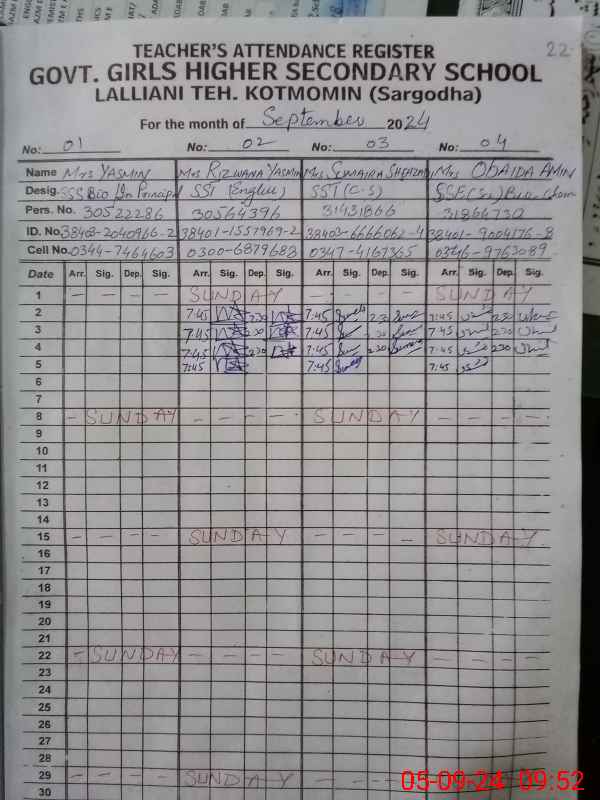 22
TEACHER'S ATTENDANCE REGISTER
GOVT. GIRLS HIGHER SECONDARY SCHOOL
LALLIANI TEH. KOTMOMIN (Sargodha)
For the month of September 2024
No: 01 No: 02 No: 03 No: 04
Name Mrs YASMIN Mrs RIZWANA YASMIN Mrs SUMAIRA SHEHZADI Mrs OBAIDA AMIN
Desig. SSS Bio In Principal SST (English) SST (C.S) SSE(Sc) Bio-Chem
Pers. No. 30522286 30564396 31431866 31864730
ID. No. 38403-2040966-2 38401-1557969-2 38403-6666062-4 38401-9004176-8
Cell No. 0344-7464603 0300-6879683 0347-4167365 0346-9763089
Date Arr. Sig. Dep. Sig. Arr. Sig. Dep. Sig. Arr. Sig. Dep. Sig. Arr. Sig. Dep. Sig.
1 - - - - SUNDAY - - - - SUNDAY
2 7:45 230 7:45 230 7:45 230
3 7:45 230 7:45 230 7:45 230
4 7:45 230 7:45 230 7:45 230
5 7:45 7:45 7:45
6
7
8 - SUNDAY - - - - - SUNDAY - - - - -
9
10
11
12
13
14
15 - - - - SUNDAY - - - - SUNDAY
16
17
18
19
20
21
22 - SUNDAY - - - - SUNDAY - - - -
23
24
25
26
27
28
29 - - - - SUNDAY
30
05-09-24 09:52